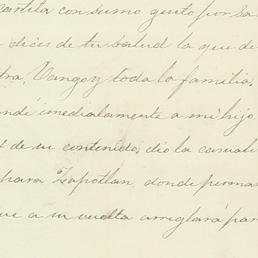 cartita con sumo gusto por sa
dices de tu salud la que de
tra, Vango y toda la familia,
indé imedialamente a mi hijo
de su contenido; dió la casuali
para Zapotlan, donde perma
ue a su vuelta arreglará par